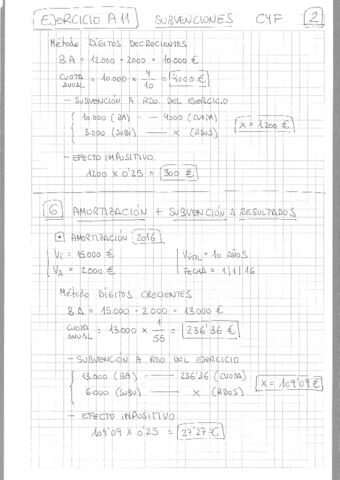 EJERCICIO A11 SUBVENCIONES CYF 2
Método DÍGITOS DECRECIENTES
B.A = 12.000 - 2000 = 10.000 €
CUOTA ANUAL = 10.000 × 4/10 = 4000 €
- SUBVENCIÓN A RDO. DEL EJERCICIO
10.000 (BA) — 4000 (CUOTA)
3.000 (SUBV) — X (RDOS) X = 1200 €
- EFECTO IMPOSITIVO
1200 × 0'25 = 300 €
6 AMORTIZACIÓN + SUBVENCIÓN A RESULTADOS
AMORTIZACIÓN 2016
Vc = 15.000 € Vútil = 10 AÑOS
VR = 2.000 € FECHA = 1/1/16
Método DÍGITOS CRECIENTES
B.A = 15.000 - 2.000 = 13.000 €
CUOTA ANUAL = 13.000 × 1/55 = 236'36 €
- SUBVENCIÓN A RDO DEL EJERCICIO
13.000 (BA) — 236'36 (CUOTA)
6.000 (SUBV) — X (RDOS) X = 109'09 €
- EFECTO IMPOSITIVO
109'09 × 0'25 = 27'27 €